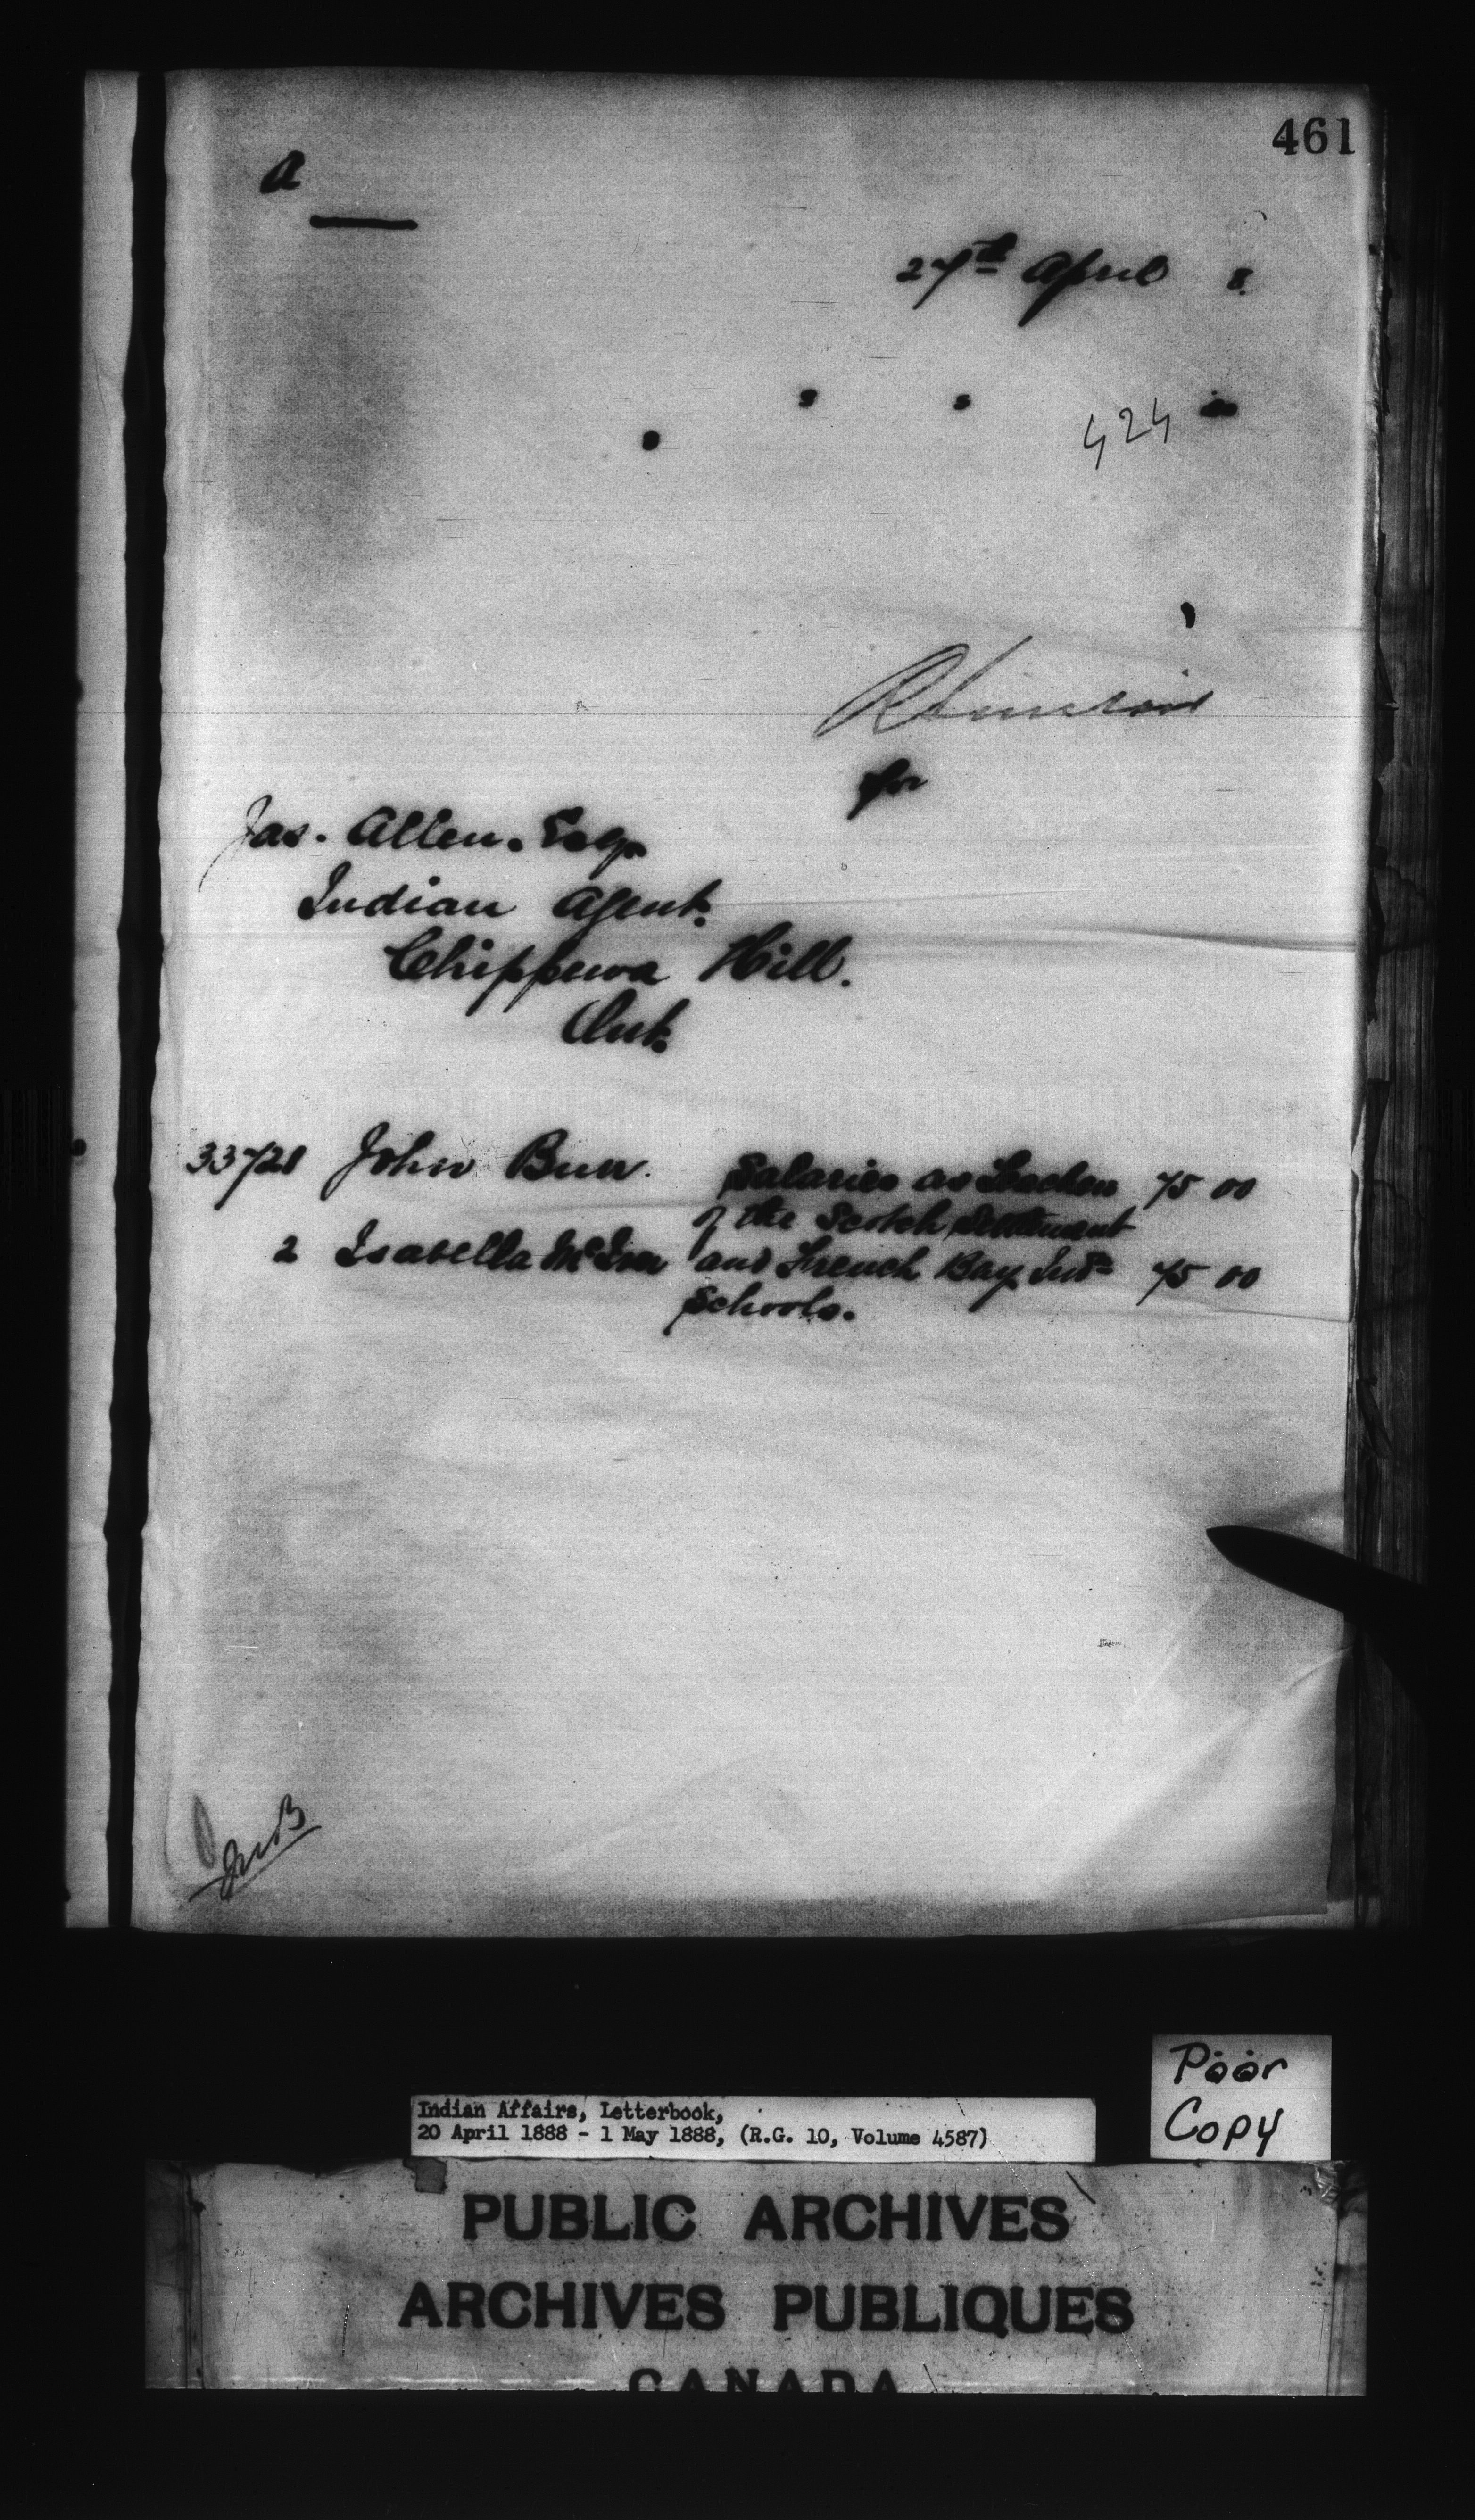 461
a
27th April 8.
s s
424
for
Jas. Allen. Esq.
Indian Agent.
Chippewa Hill.
Ont.
33721 John Burr. Salaries as Teachers 75 00
of the Scotch Settlement
2 Isabella McIver and French Bay Indn 75 00
Schools.
Poor
Copy
Indian Affairs, Letterbook,
20 April 1888 - 1 May 1888, (R.G. 10, Volume 4587)
PUBLIC ARCHIVES
ARCHIVES PUBLIQUES
CANADA